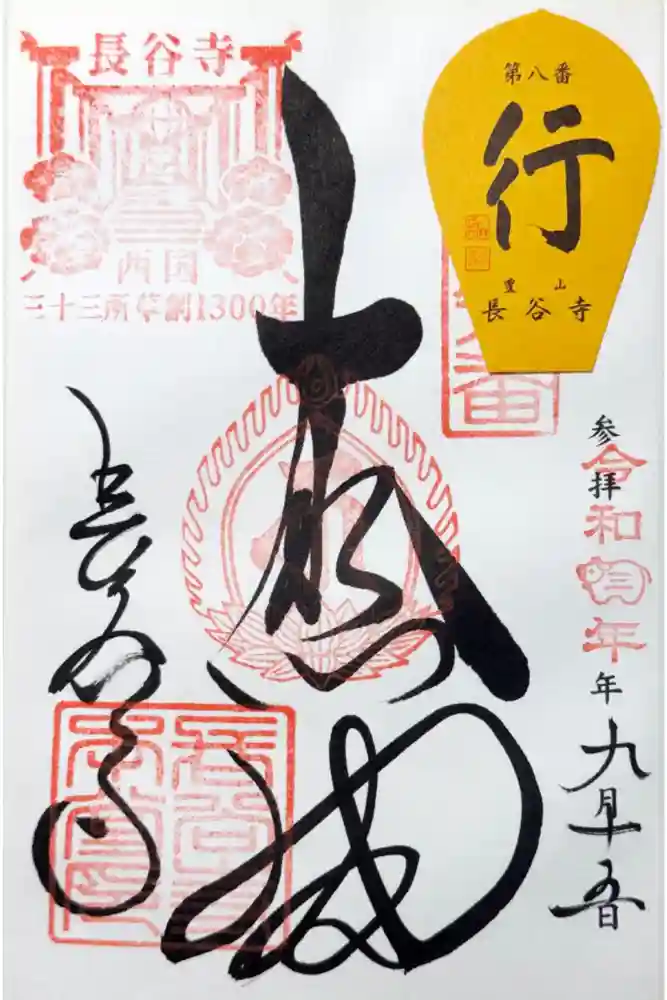 長谷寺
西国
三十三所草創1300年
第八番
行
豊山
長谷寺
参拝
令和
年
年
九月十五日
大悲閣
長谷寺